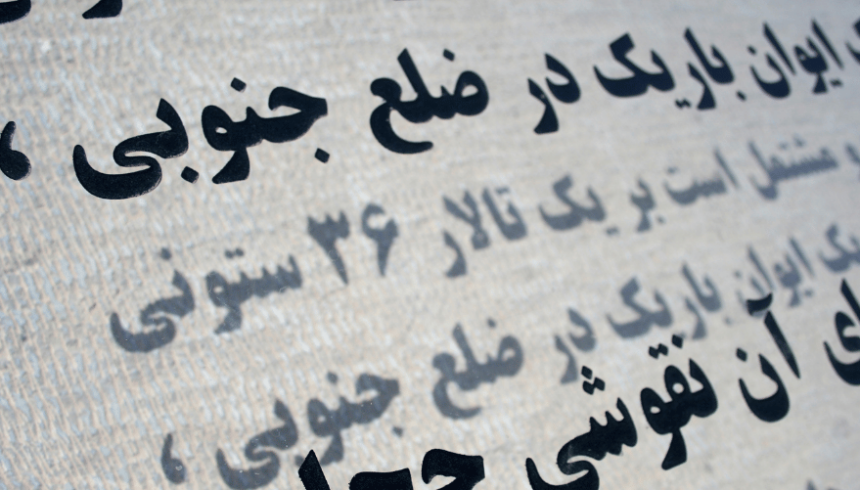 ایوان باریک در ضلع جنوبی ،
مشتمل است بر یک تالار ۳۶ ستونی
یک ایوان باریک در ضلع جنوبی ،
ای آن نقوشی